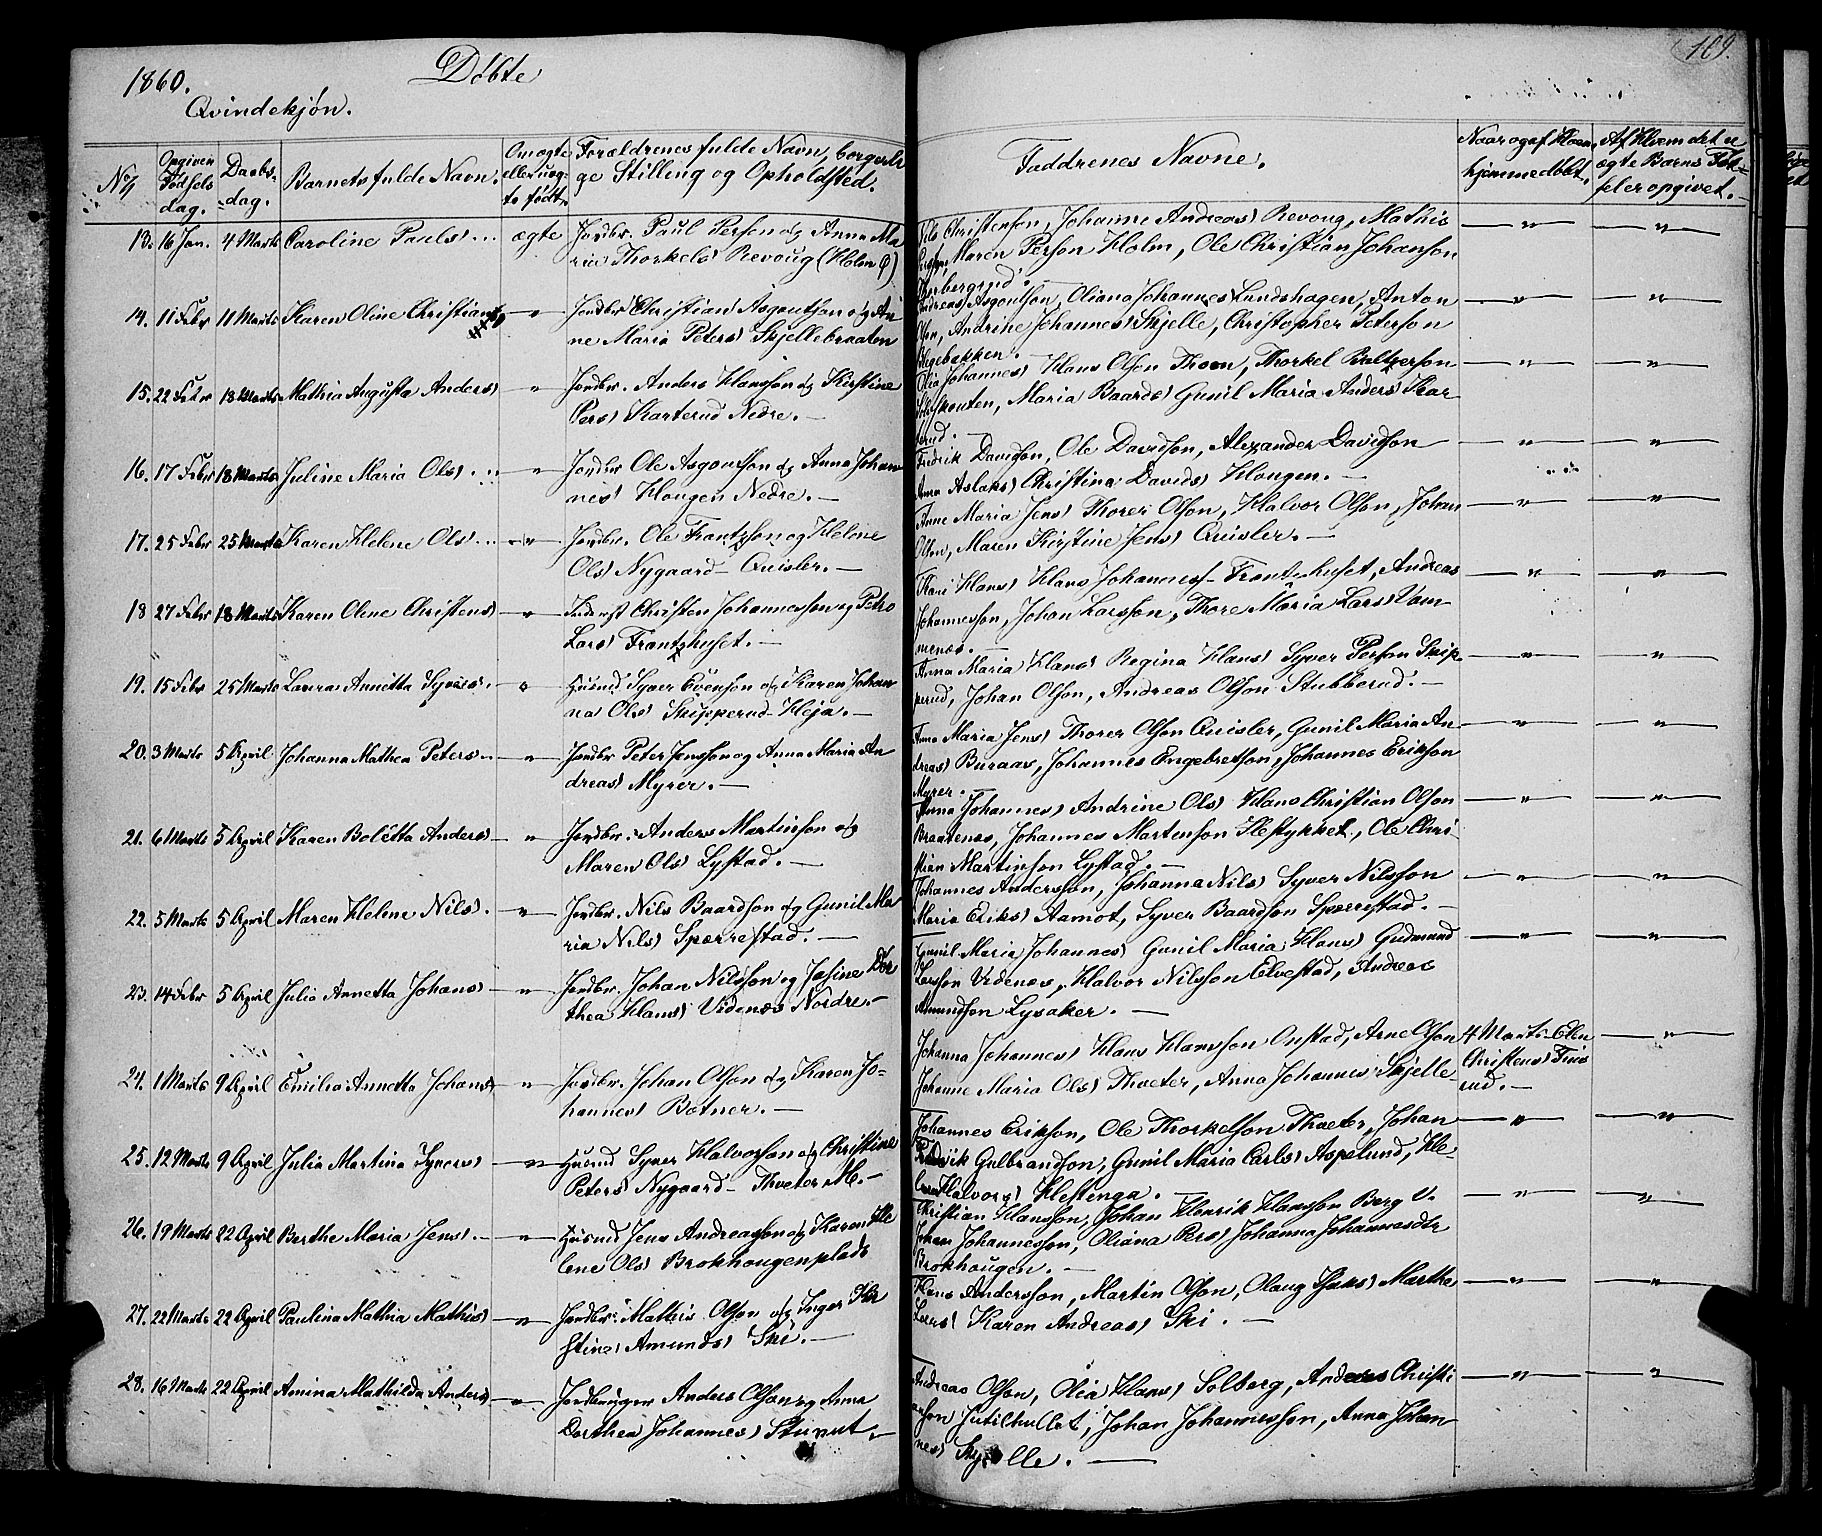 1860. Döbte
109.
Qvindekjön.
No/ Opgiven Födsels dag. Daabs-dag. Barnets fulde Navn. Om ægte eller uægte födt. Forældrenes fulde Navn, borgerlige Stilling og Opholdsted. Faddrenes Navne. Naar og af Hvem hjemmedöbt. Af Hvem det uægte Barns opgivet.
13. 16 Jan. 4 Marts Caroline Pauls) ægte Jordbr. Paul Person og Anna Ma
ria Thorkels) Revoug (Holm Ø)
Christenson, Johanne Andreas) Revoug, Mathis
Maren Person Holm, Ole Christian Johanson
14. 11 Febr 11 Marts Karen Oline Christians) " Jordbr Christian Asgoutson og An
ne Maria Peters) Skjellebraaten
Andreas Asgoutson, Oliana Johannes) Lundshagen, Anton
Olson, Andrine Johannes) Skjelle, Christopher Peterson
15. 22 Febr 18 Marts Mathia Augusta Anders) " Jordbr. Anders Hansson og Kirstine
Pers) Karterud Nedre.
Olia Johannes) Hans Olson Thom, Thorkel Baltzerson
Maria Baards) Gunil Maria Anders) Kar
terud.
16. 17 Febr 18 Marts Juline Maria Ols) " Jordbr Ole Asgoutson og Anna Johan
nes) Hougen Nedre.
Fredrik Davidson, Ole Davidson, Alexander Davidson
Anna Aslaks) Christina Davids) Hougen.
17. 25 Febr 25 Marts Karen Helene Ols) " Jordbr. Ole Frantzson og Helene
Ols) Nygaard Quisler.
Anne Maria Jens) Thorer Olson, Halvor Olson, Johan
Olson, Maren Kirstine Jens) Quisler.
18 27 Febr 18 Marts Karen Oline Christens) " Inderst Christen Johannesson og Petro
Lars) Frantzhuset.
Kari Hans) Hans Johannes) Frantzhuset, Andreas
Johannesson, Johan Larsson, Thore Maria Lars) Vam
menæs.
19. 15 Febr 25 Marts Laura Annetta Syvers) " Husmd Syver Evenson og Karen Johan
na Ols) Skipperud Heja.
Anna Maria Hans) Regina Hans) Syver Person Skip
perud, Johan Olson, Andreas Olson Stubberud.
20. 3 Marts 5 April Johanna Mathea Peters " Jordbr Peter Jensson og Anna Maria An
dreas) Myrer.
Anna Maria Jens) Thorer Olson Quisler, Gunil Maria An
dreas) Buraas, Johannes Engebretson, Johannes Erikson
Myrer.
21. 6 Marts 5 April Karen Boletta Anders) " Jordbr. Anders Martinson og
Maren Ols) Lystad.
Anna Johannes) Andrine Ols) Hans Christian Olson
Braatenes, Johannes Martenson Hestykket, Ole Chri
stian Martinson Lystad.
22. 5 Marts 5 April Maren Helene Nils) " Jordbr. Nils Baardson og Gunil Ma
ria Nils) Spærrestad.
Johannes Andersson, Johanna Nils) Syver Nilsson
Maria Eriks) Aamot, Syver Baardson Spærrestad.
23. 14 Febr 5 April Julia Annetta Johans) " Jordbr. Johan Nilsson og Josine Dor
thea Hans) Videnæs Nordre.
Gunil Maria Johannes) Gunil Maria Hans) Gudmund
Larsson Videnæs, Halvor Nilsson Elvestad, Andreas
Amundson Lysaker.
24. 1 Marts 9 April Emilia Annetta Johans) " Jordbr. Johan Olson og Karen Jo-
hannes) Botner.
Johanna Johannes) Hans Hansson Onstad, Arne Olson 4 Marts Ellen
Johanne Maria Ols) Thveter, Anna Johannes) Skjelle Christens)
rud.
25. 12 Marts 9 April Julia Martina Syvers) " Husmd Syver Halvorson og Christine
Peters) Nygaard Thveter M.
Johannes Erikson, Ole Thorkelson Thveter, Johan
Fredrik Gulbrandson, Gunil Maria Carls) Aspelund, He-
lene Halvors) Hestenga.
26. 19 Marts 22 April Berthe Maria Jens) " Husmd Jens Andreasson og Karen He
lene Ols) Brokhougenplads
Christian Hansson, Johan Henrik Hansson Berg V.
Johannesson, Oliana Pers) Johanna Johannesdtr
Brokhougen.
27. 22 Marts 22 April Paulina Mathia Mathis) " Jordbr. Mathis Olson og Inger Kir
stine Amunds) Ski.
Hans Andersson, Martin Olson, Olaug Isaks) Marthe
Lars) Karen Andreas) Ski.
28. 16 Marts 22 April Amina Mathilda Anders) " Jordbruger Anders Olson og Anna
Dorthea Johannes)
Andreas Olson, Olia Hans) Solberg, Andreas Christi
anson Jutilhullet, Johan Johannesson, Anna Johan
nes) Skjelle.